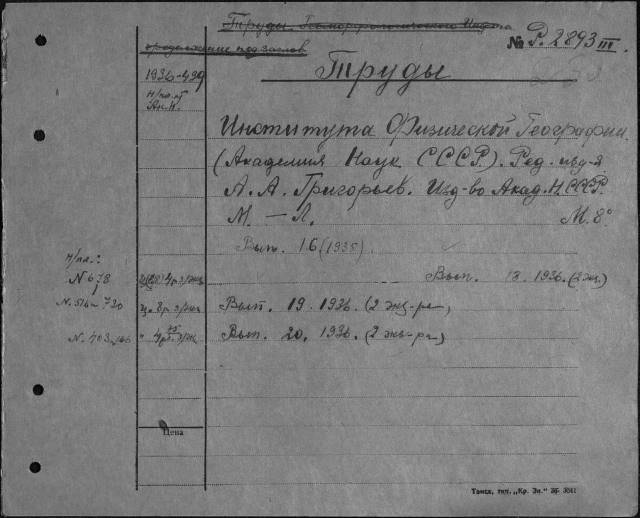 Труды Геоморфологического Инст-та
продолжение под заглов
№ Р. 2893 III
1936-439
Труды
н/пл.
Ак.Н.
Института Физической Географии.
(Академия Наук СССР). Ред.
А. А. Григорьев. Изд-во Акад. Н. СССР.
М. — Л. М. 8°
Вып. 16 (1935).
н/пл.:
N 678 Вып. 18. 1936. (2 экз.)
N. 516-720 Вып. 19. 1936. (2 экз-ра)
N. 403 Вып. 20. 1936. (2 экз-ра)
Цена
Томск, тип. „Кр. Зн."